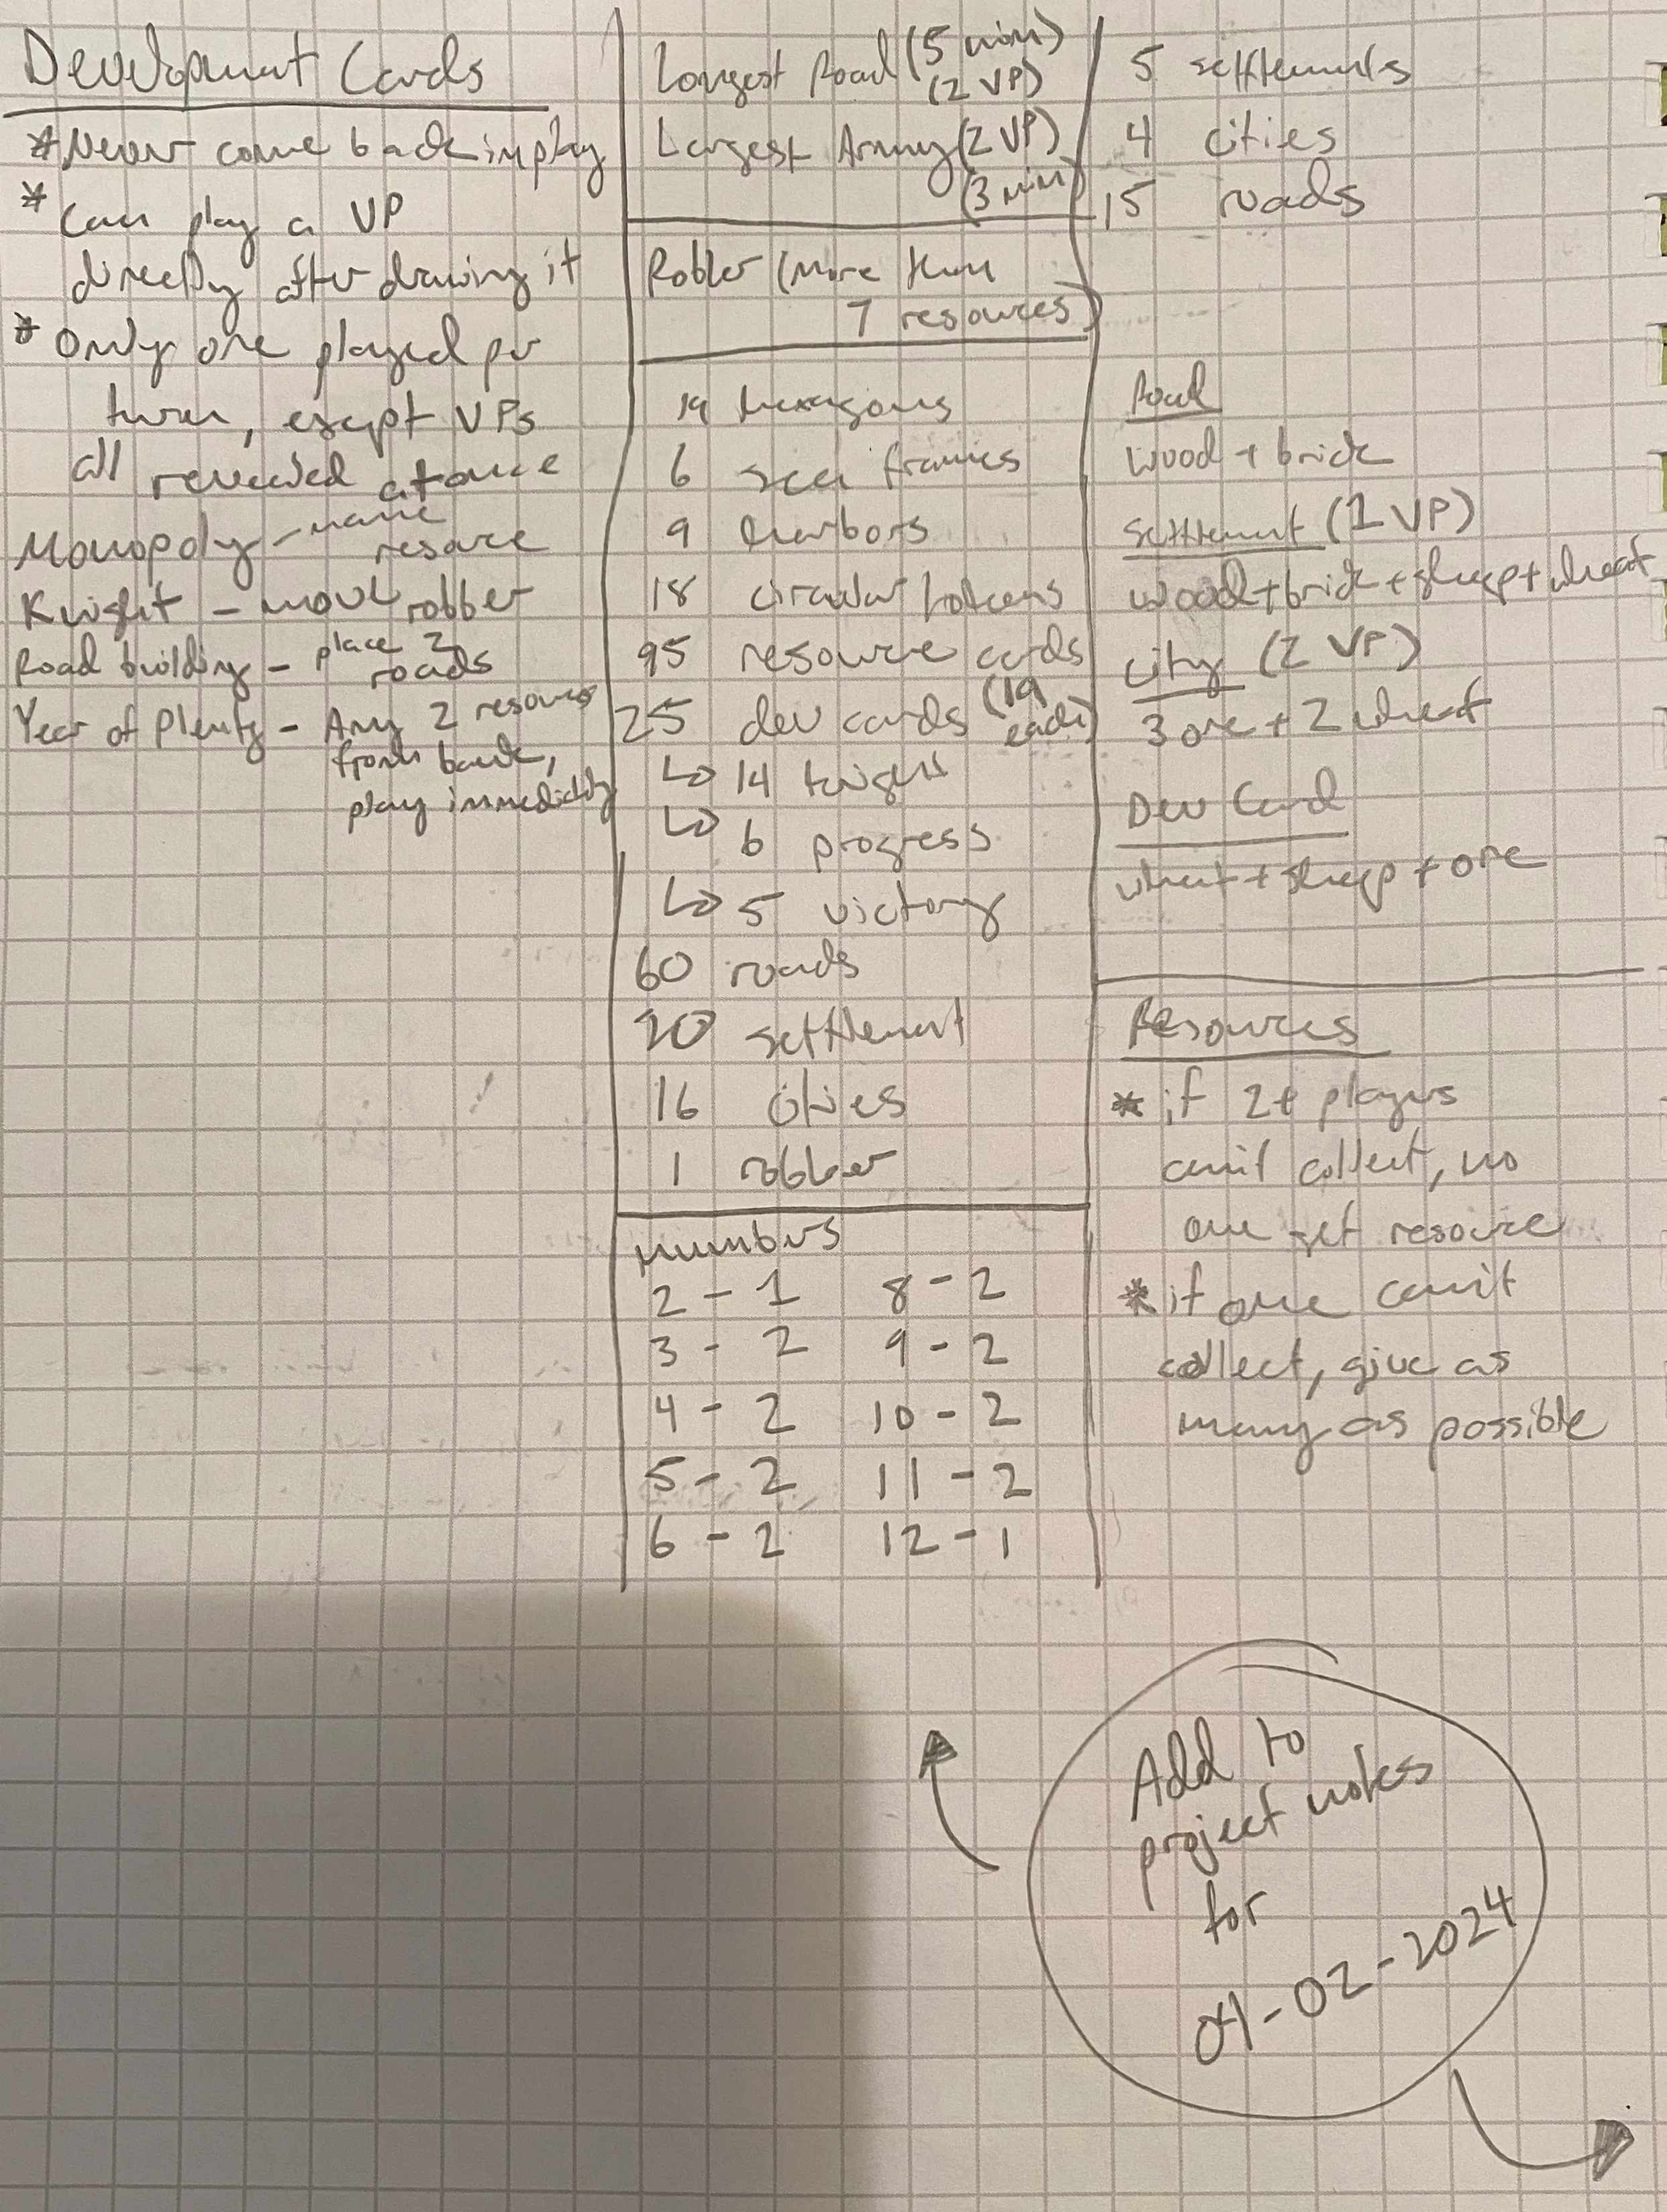 Development Cards
* Never come back in play
* Can play a VP
directly after drawing it
* Only one played per
turn, esept VPs
all revealed at once
Monopoly - name
resource
Knight - move robber
Road building - place 2
roads
Year of Plenty - Any 2 resources
from bank,
play immediatly
Longest Road (5 min)
(2 VP)
Largest Army (2 VP)
(3 min)
Robber (More than
7 resources)
19 hexagons
6 sea frames
9 harbors
18 circular tokens
95 resource cards
(19
each)
25 dev cards
↳ 14 knight
↳ 6 progress
↳ 5 victory
60 roads
20 settlement
16 cities
1 robber
numbers
2 - 1 8 - 2
3 - 2 9 - 2
4 - 2 10 - 2
5 - 2 11 - 2
6 - 2 12 - 1
5 settlements
4 cities
15 roads
Road
wood + brick
Settlement (1 VP)
wood + brick + sheep + wheat
City (2 VP)
3 ore + 2 wheat
Dev Card
wheat + sheep + ore
Resources
* if 2+ players
can't collect, no
one get resource
* if one can't
collect, give as
many as possible
Add to
project notes
for
-02-2024